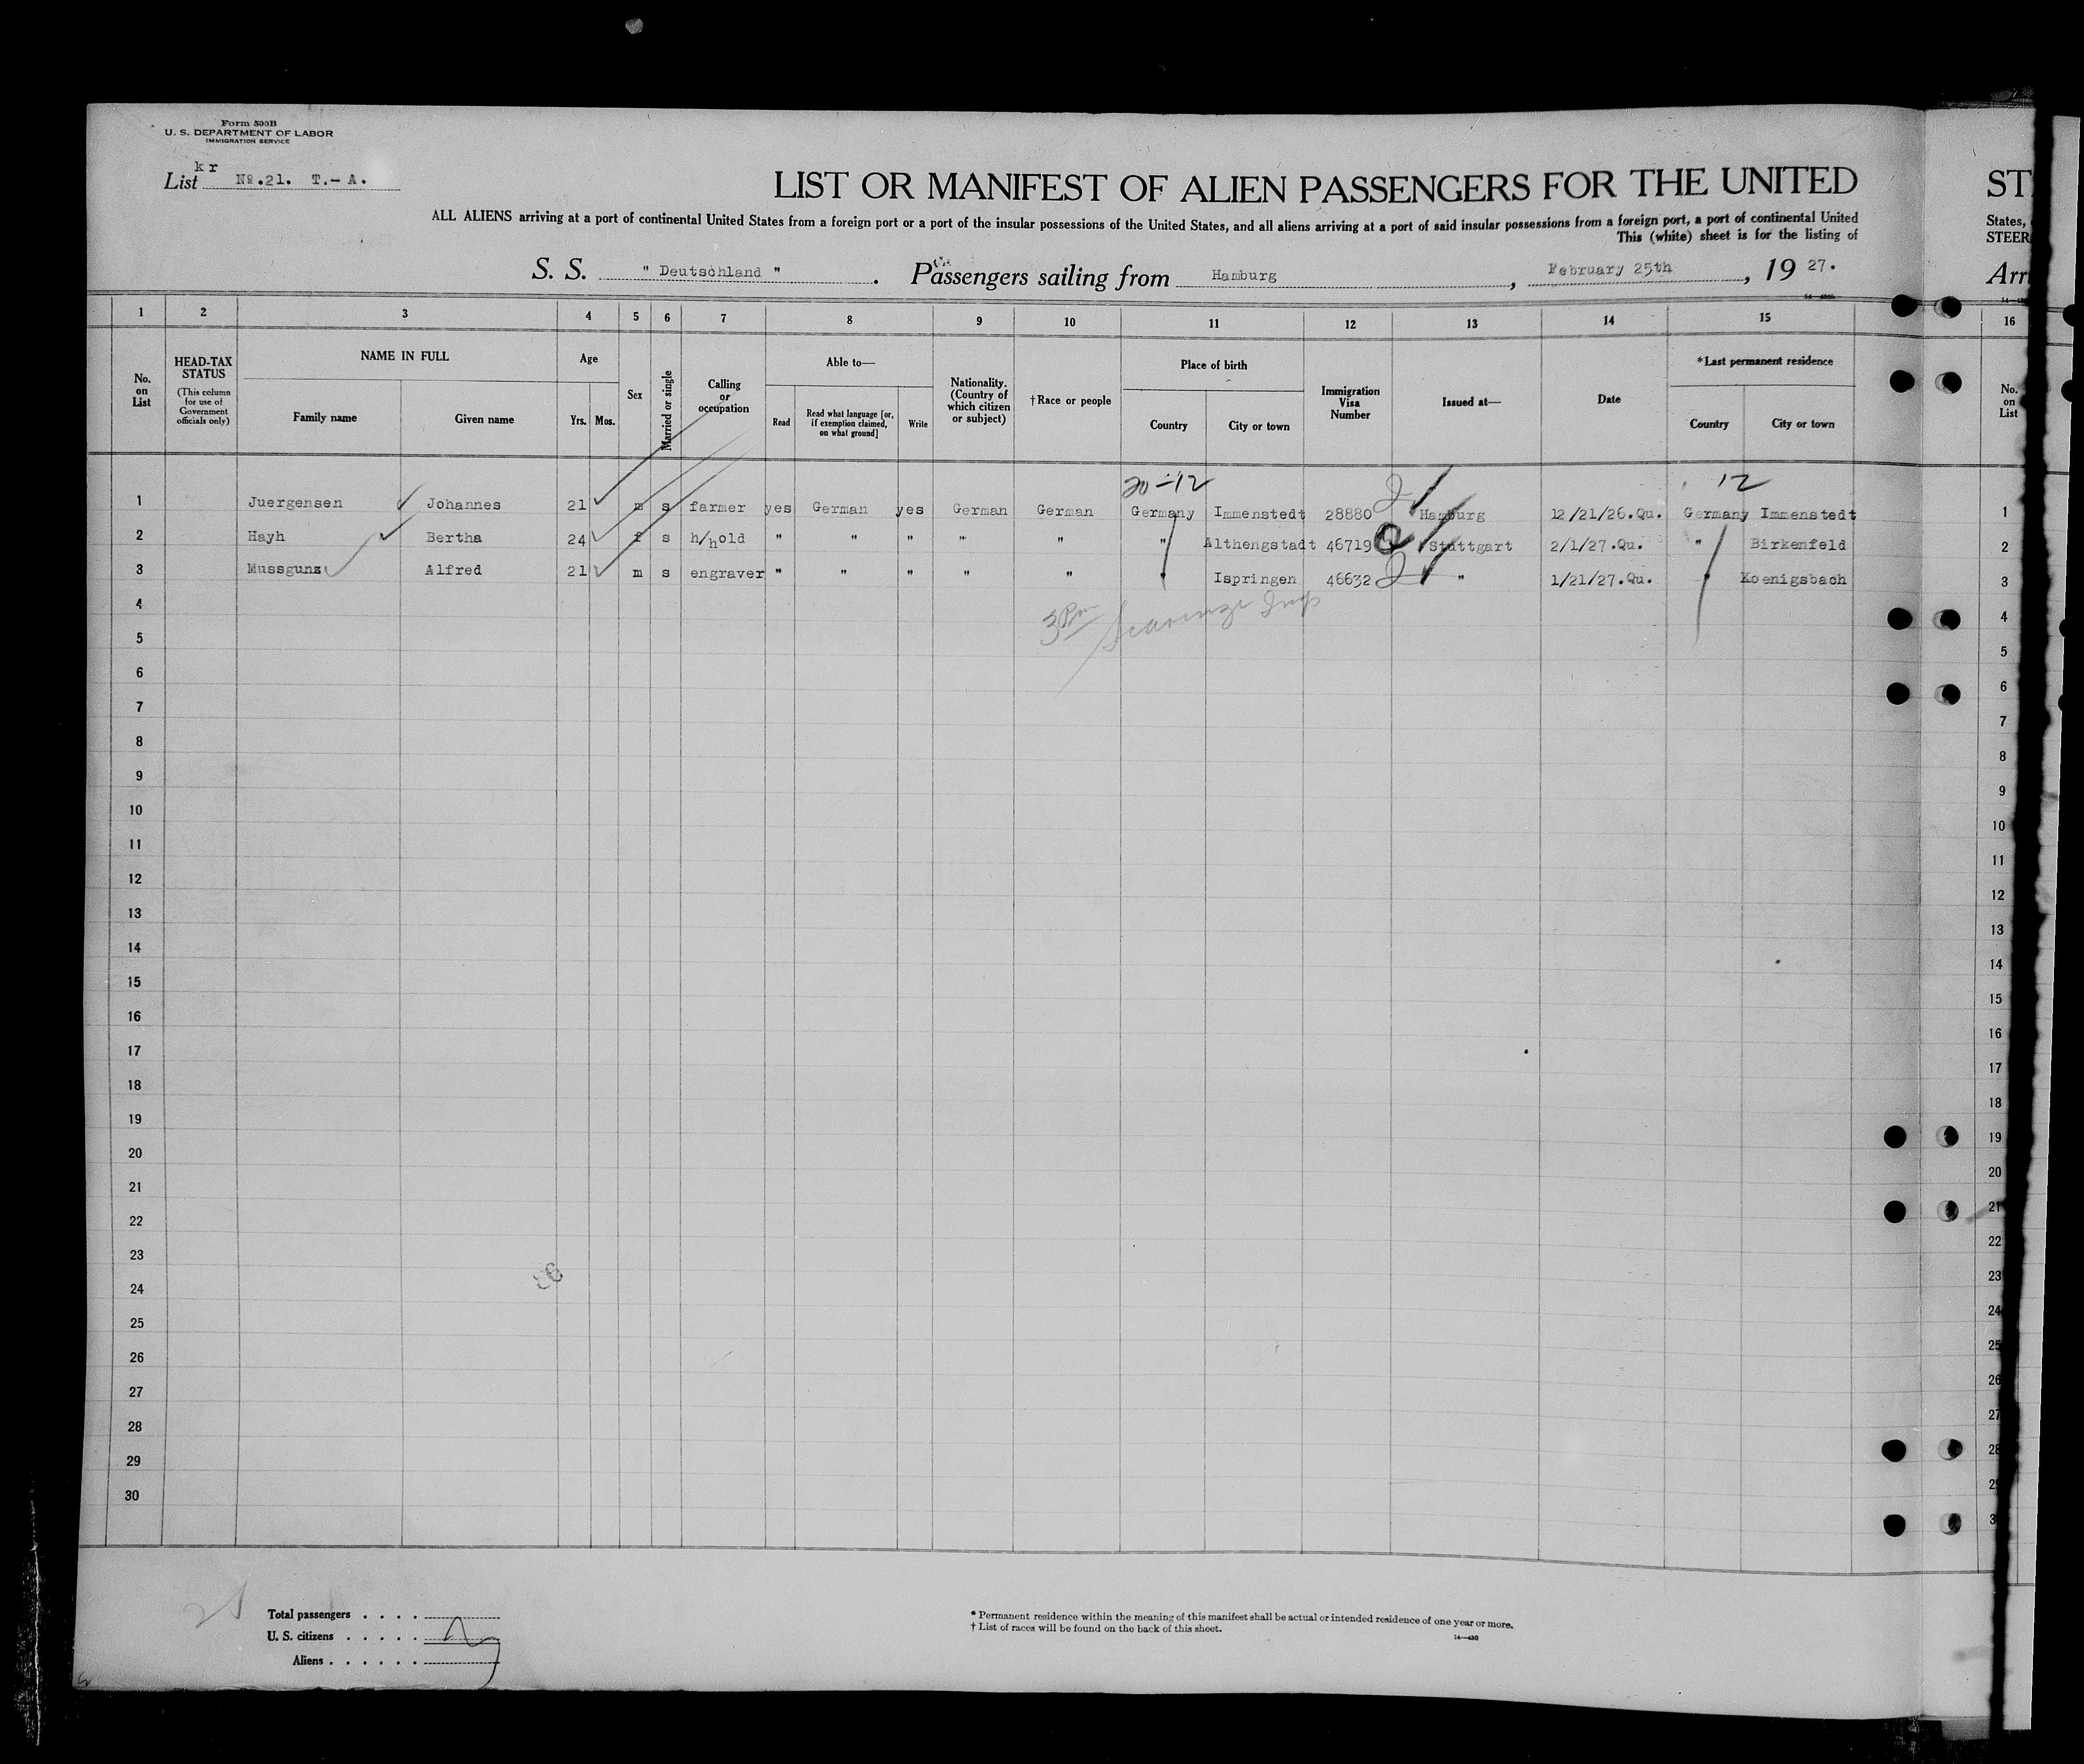 Form 500B
U. S. DEPARTMENT OF LABOR
IMMIGRATION SERVICE
kr
List No.21. T.-A.
LIST OR MANIFEST OF ALIEN PASSENGERS FOR THE UNITED
ST
ALL ALIENS arriving at a port of continental United States from a foreign port or a port of the insular possessions of the United States, and all aliens arriving at a port of said insular possessions from a foreign port, a port of continental United
States,
This (white) sheet is for the listing of
STEER
S. S. " Deutschland ". Passengers sailing from Hamburg, February 25th, 19 27.
Arr
1 2 3 4 5 6 7 8 9 10 11 12 13 14 15 16
No. on List
HEAD-TAX STATUS
(This column for use of Government officials only)
NAME IN FULL
Family name
Given name
Age
Yrs. Mos.
Sex
Married or single
Calling or occupation
Able to—
Read
Read what language [or, if exemption claimed, on what ground]
Write
Nationality. (Country of which citizen or subject)
† Race or people
Place of birth
Country
City or town
Immigration Visa Number
Issued at—
Date
* Last permanent residence
Country
City or town
No. on List
20-12
12
1 Juergensen Johannes 21 m s farmer yes German yes German German Germany Immenstedt 28880 Hamburg 12/21/26.Qu. Germany Immenstedt 1
2 Hayh Bertha 24 f s h/hold " " " " " " Althengstadt 46719 Stuttgart 2/1/27.Qu. " Birkenfeld 2
3 Mussgunz Alfred 21 m s engraver " " " " " " Ispringen 46632 " 1/21/27.Qu. " Koenigsbach 3
3 Pm
4 4
5 5
6 6
7 7
8 8
9 9
10 10
11 11
12 12
13 13
14 14
15 15
16 16
17 17
18 18
19 19
20 20
21 21
22 22
23 23
24 24
25 25
26 26
27 27
28 28
29 29
30 3
Total passengers . . . .
U. S. citizens . . . . .
Aliens . . . . . .
* Permanent residence within the meaning of this manifest shall be actual or intended residence of one year or more.
† List of races will be found on the back of this sheet.
14—430